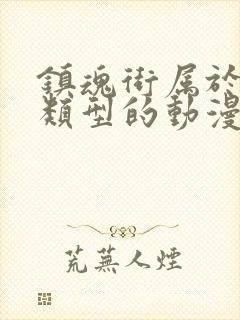 鎮魂街属於
類型的動漫
荒蕪人煙